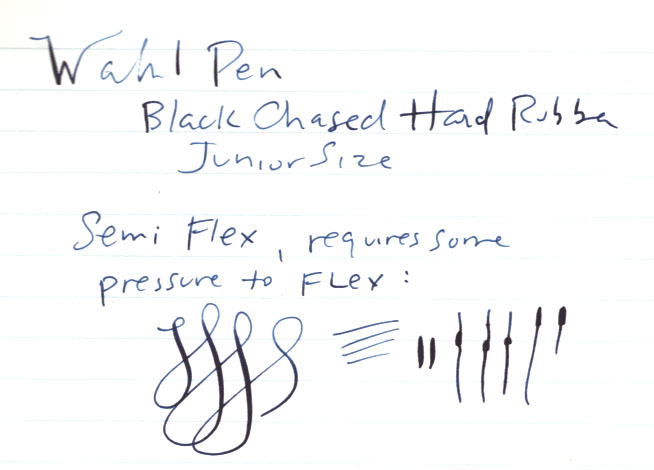 Wahl Pen
Black Chased Hard Rubber
Junior Size
Semi Flex, requires some
pressure to FLex: